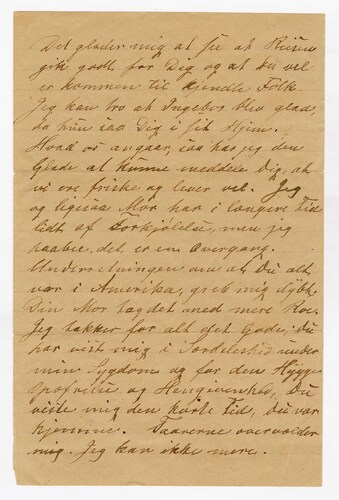 Det glæder mig at se at Reisen
gik godt for Dig og at Du vel
er kommen til kjendte Folk.
Jeg kan tro at Ingebor blev glad,
da hun saa Dig i sit Hjem.
Hvad os angaar, saa har jeg den
Glæde at kunne meddele Dig, at
vi ere friske og lever vel. Jeg
og ligesaa Mor har i længere Tid
lidt af Forkjølelse, men jeg
haaber det er en Overgang.
Underretningen om at Du alt
var i Amerika, greb mig dybt.
Din Mor tog det med mere Roe.
Jeg takker for alt det Gode, Du
har vist mig i Særdeleshed under
min Sygdom og for den Hygge
Opofrelse og Hengivenhed, Du
viste mig den korte Tid, Du var
hjemme. Taarerne overvælder
mig. Jeg kan ikke mere.